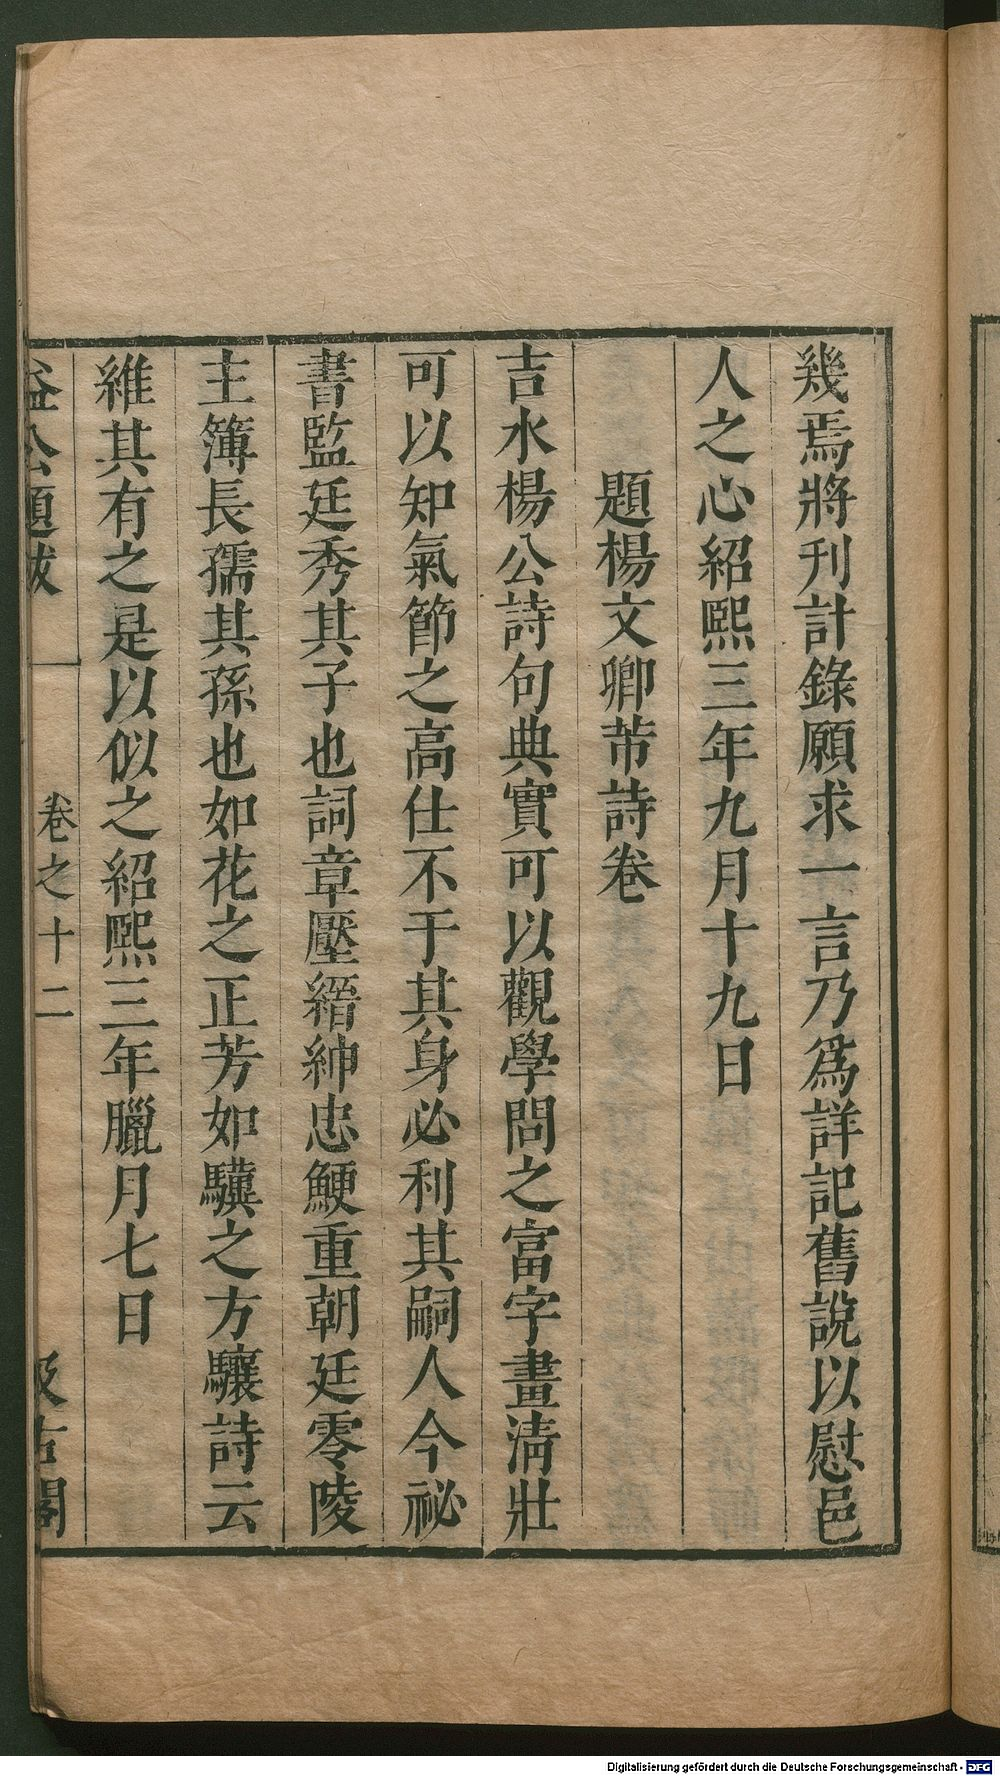 幾焉將刊計錄願求一言乃爲詳記舊說以慰邑
人之心紹熙三年九月十九日
題楊文卿芾詩卷
吉水楊公詩句典實可以觀學問之富字畫淸壯
可以知氣節之高仕不于其身必利其嗣人今祕
書監廷秀其子也詞章壓縉紳忠鯁重朝廷零陵
主簿長孺其孫也如花之正芳如驥之方驤詩云
維其有之是以似之紹熙三年臘月七日
益公題跋 卷之十二 汲古閣
Digitalisierung gefördert durch die Deutsche Forschungsgemeinschaft - DFG